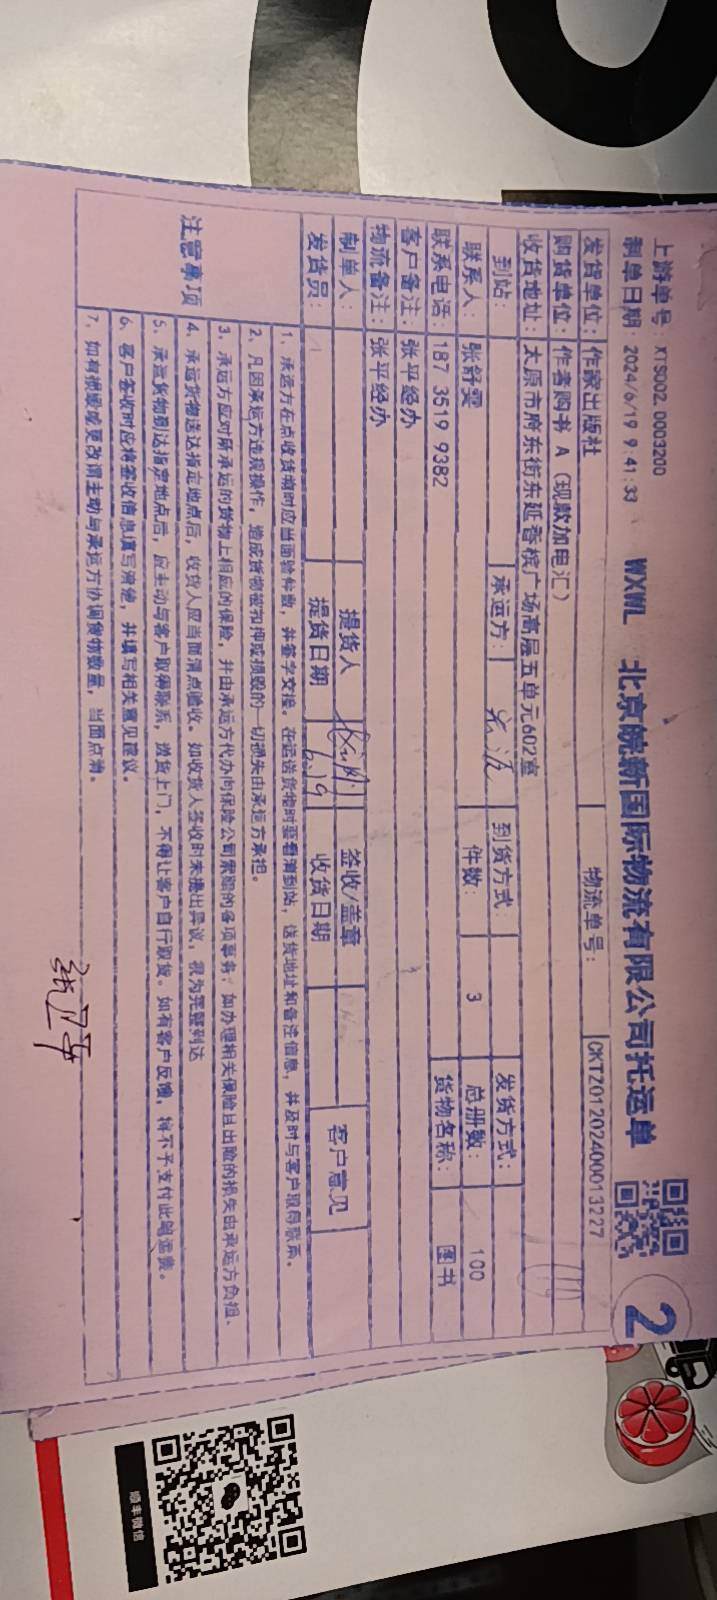 上游单号：XTS002.D003200
WXWL 北京皖新国际物流有限公司托运单
2
制单日期：2024/6/19 9:41:33
发货单位：作家出版社 物流单号：CKTZ0120240001 3227
购货单位：作者购书 A（现款加电汇）
收货地址：太原市府东街东延香槟广场高层五单元602室
到站： 承运方： 到货方式： 发货方式：
联系人：张舒雯 件数：3 总册数：100
联系电话：187 3519 9382 货物名称：图书
客户备注：张平经办
物流备注：张平经办
制单人： 提货人 签收/盖章 客户意见
发货员： 提货日期 6.19 收货日期
注意事项
1、承运方在点收货物时应当面验件数，并签字交接。在运送货物时要看清到站，送货地址和备注信息，并及时与客户取得联系。
2、凡因承运方违规操作，造成货物被扣押或损毁的一切损失由承运方承担。
3、承运方应对所承运的货物上相应的保险，并由承运方代办向保险公司索赔的各项事务，如办理相关保险且出险的损失由承运方负担。
4、承运货物送达指定地点后，收货人应当面清点验收。如收货人签收时未提出异议，视为完整到达
5、承运货物到达指定地点后，应主动与客户取得联系，送货上门，不得让客户自行取货。如有客户反馈，将不予支付此笔运费。
6、客户签收时应将签收信息填写清楚，并填写相关意见建议。
7、如有搬卸或更改请主动与承运方协调货物数量，当面点清。
顺丰微信